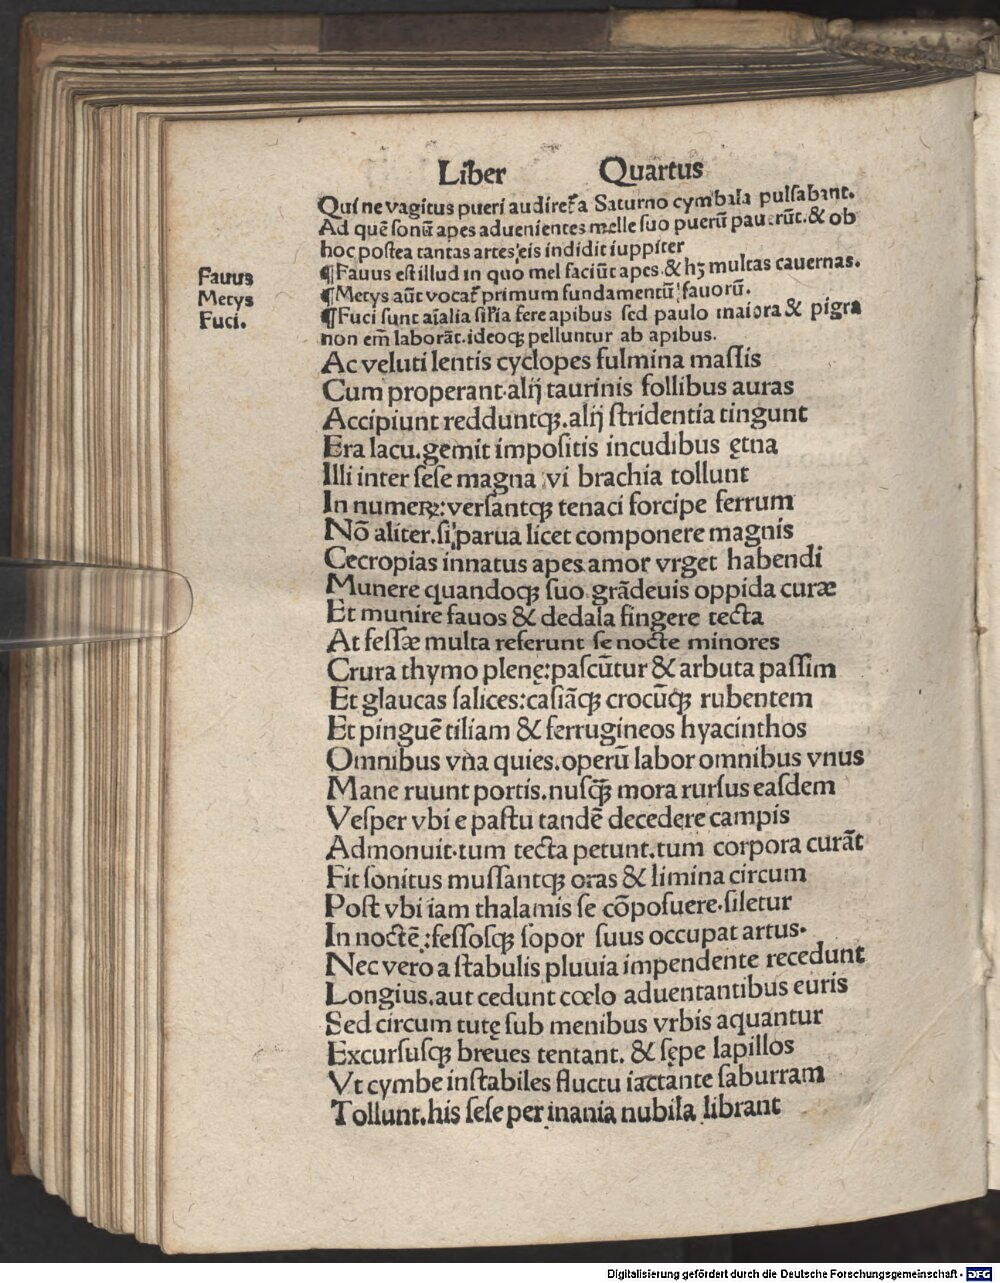 Liber Quartus
Qui ne vagitus pueri audiret᷑ a Saturno cymbala pulsabant.
Ad quē sonū apes aduenientes melle suo puerū pauerūt. & ob
hoc postea tantas artes eis indidit iuppiter
Fauus
¶Fauus est illud in quo mel faciūt apes. & hꝫ multas cauernas.
Metys
¶Metys aūt vocat᷑ primum fundamentū fauorū.
Fuci.
¶Fuci sunt aīalia sil'ia fere apibus sed paulo maiora & pigra
non em̄ laborāt. ideoqꝫ pelluntur ab apibus.
Ac veluti lentis cyclopes fulmina massis
Cum properant. alij taurinis follibus auras
Accipiunt redduntqꝫ. alij stridentia tingunt
Era lacu. gemit impositis incudibus ętna
Illi inter sese magna vi brachia tollunt
In numeꝝ: versantqꝫ tenaci forcipe ferrum
Nō aliter. si parua licet componere magnis
Cecropias innatus apes amor vrget habendi
Munere quandoqꝫ suo. grādeuis oppida curæ
Et munire fauos & dedala fingere tecta
At fessæ multa referunt se nocte minores
Crura thymo plenę: pascūtur & arbuta passim
Et glaucas salices: casiāqꝫ crocūqꝫ rubentem
Et pinguē tiliam & ferrugineos hyacinthos
Omnibus vna quies. operū labor omnibus vnus
Mane ruunt portis. nusqꝫ̄ mora rursus easdem
Vesper vbi e pastu tandē decedere campis
Admonuit. tum tecta petunt. tum corpora curāt
Fit sonitus mussantqꝫ oras & limina circum
Post vbi iam thalamis se cōposuere. siletur
In noctē: fessosqꝫ sopor suus occupat artus.
Nec vero a stabulis pluuia impendente recedunt
Longius. aut cedunt cœlo aduentantibus euris
Sed circum tutę sub menibus vrbis aquantur
Excursusqꝫ breues tentant. & sępe lapillos
Vt cymbe instabiles fluctu iactante saburram
Tollunt. his sese per inania nubila librant
Digitalisierung gefördert durch die Deutsche Forschungsgemeinschaft - DFG